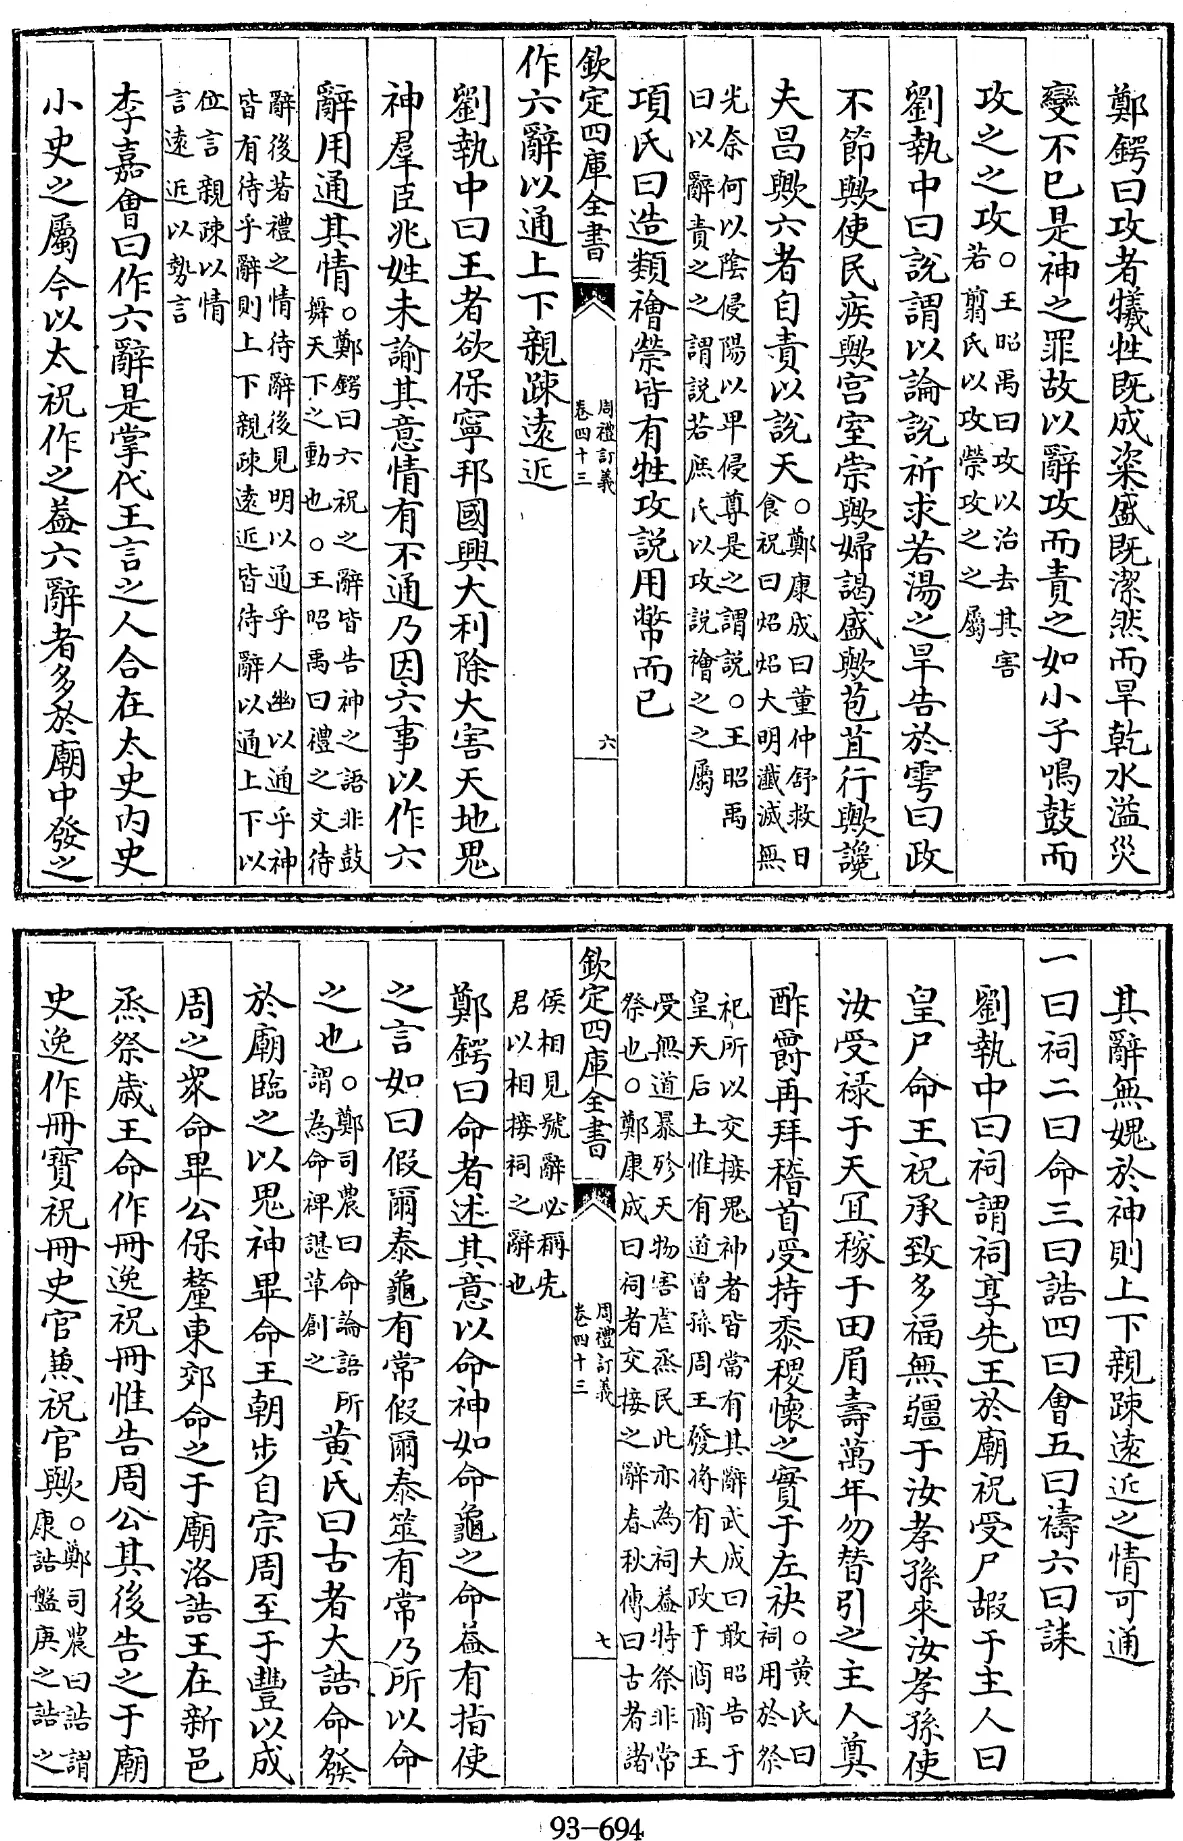 鄭鍔曰攻者犧牲既成粢盛既潔然而旱乾水溢災
變不已是神之罪故以辭攻而責之如小子鳴鼓而
攻之之攻○王昭禹曰攻以治去其害若翦氏以攻禜攻之之屬
劉執中曰說謂以論說祈求若湯之旱告於雩曰政
不節歟使民疾歟宫室崇歟婦謁盛歟苞苴行歟讒
夫昌歟六者自責以說天○鄭康成曰董仲舒救日食祝曰炤炤大明瀸滅無
光奈何以陰侵陽以卑侵尊是之謂說○王昭禹曰以辭責之之謂說若庶氏以攻說禬之之屬
項氏曰造類禬禜皆有牲攻說用幣而已
欽定四庫全書
周禮訂義
卷四十三
六
作六辭以通上下親疎遠近
劉執中曰王者欲保寧邦國興大利除大害天地鬼
神羣臣兆姓未諭其意情有不通乃因六事以作六
辭用通其情○鄭鍔曰六祝之辭皆告神之語非鼓舞天下之動也○王昭禹曰禮之文待
辭後著禮之情待辭後見明以通乎人幽以通乎神皆有待乎辭則上下親疎遠近皆待辭以通上下以
位言親疎以情言遠近以勢言
李嘉會曰作六辭是掌代王言之人合在太史内史
小史之屬今以太祝作之葢六辭者多於廟中發之
其辭無媿於神則上下親疎遠近之情可通
一曰祠二曰命三曰誥四曰會五曰禱六曰誄
劉執中曰祠謂祠享先王於廟祝受尸嘏于主人曰
皇尸命王祝承致多福無疆于汝孝孫來汝孝孫使
汝受禄于天宜稼于田眉壽萬年勿替引之主人奠
酢爵再拜稽首受持黍稷懷之實于左袂○黄氏曰祠用於祭
祀所以交接鬼神者皆當有其辭武成曰敢昭告于皇天后土惟有道曾孫周王發將有大政于商商王
受無道暴殄天物害虐烝民此亦為祠葢特祭非常祭也○鄭康成曰祠者交接之辭春秋傳曰古者諸
欽定四庫全書
周禮訂義
卷四十三
七
侯相見號辭必稱先君以相接祠之辭也
鄭鍔曰命者述其意以命神如命龜之命葢有指使
之言如曰假爾泰龜有常假爾泰筮有常乃所以命
之也○鄭司農曰命論語所謂為命裨諶草創之黄氏曰古者大誥命發
於廟臨之以鬼神畢命王朝步自宗周至于豐以成
周之衆命畢公保釐東郊命之于廟洛誥王在新邑
烝祭歲王命作冊逸祝冊惟告周公其後告之于廟
史逸作冊寶祝冊史官兼祝官歟○鄭司農曰誥謂康誥盤庚之誥之
93-694